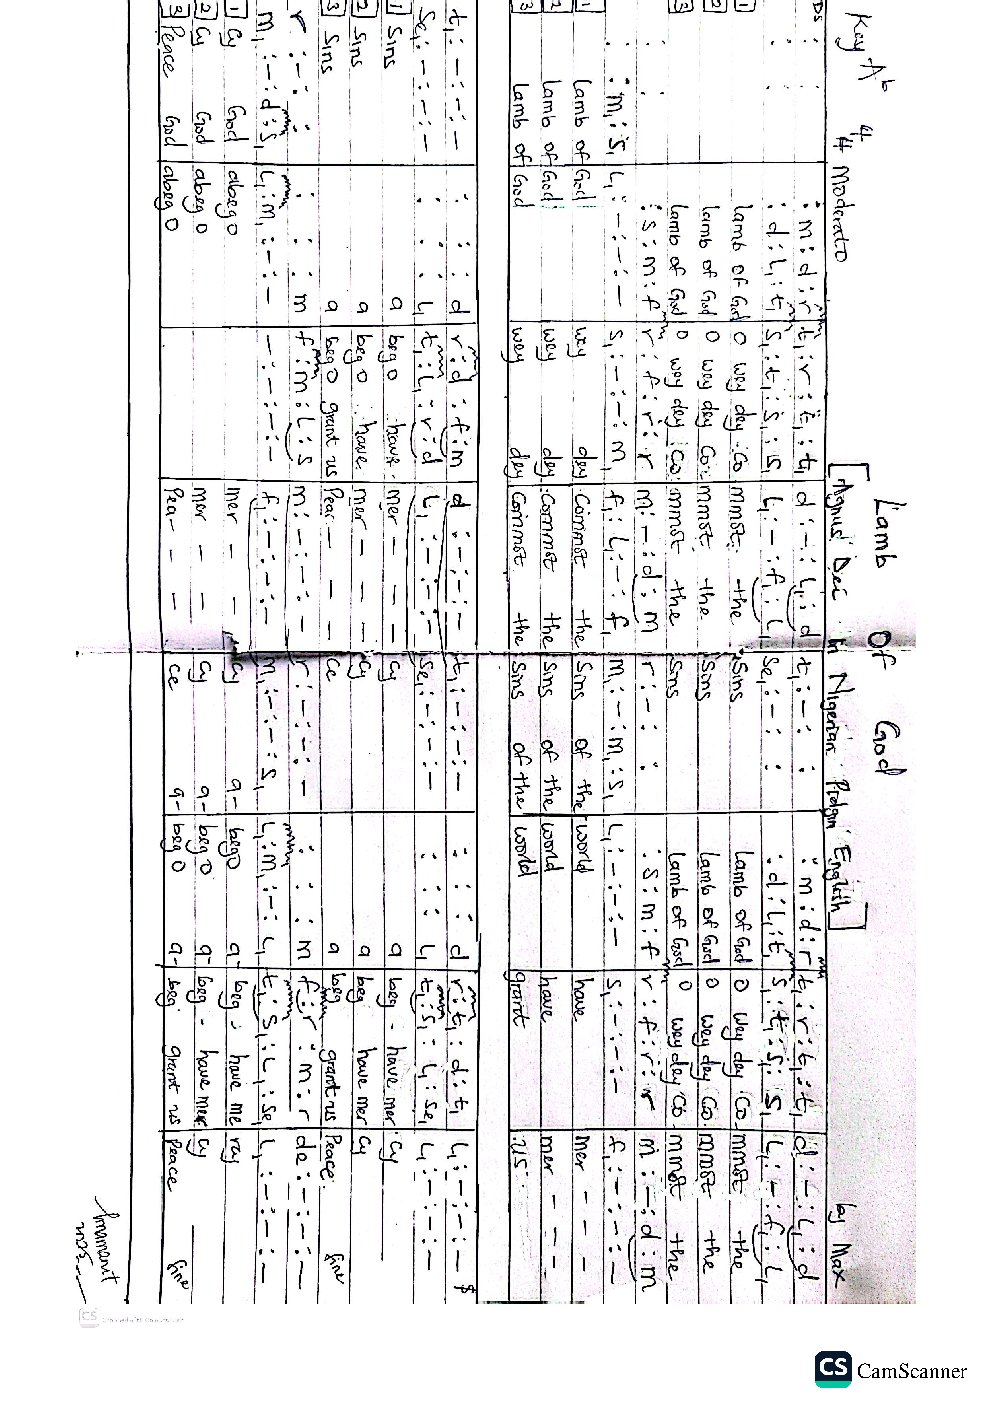 Lamb Of God
[Agnus Dei in Nigerian Pidgin English]
Key Ab 4/4 Moderato
by Max
DS
: m : d : r t₁ : r : t₁ : t₁ d : – : l₁ : d t₁ : – : :
: m : d : r t₁ : r : t₁ : t₁ d : – : l₁ : d
: d : l₁ : t₁ s₁ : t₁ : s₁ : s₁ l₁ : – : f₁ : l₁ se₁ : – : :
: d : l₁ : t₁ s₁ : t₁ : s₁ : s₁ l₁ : – : f₁ : l₁
1 lamb of God O wey dey Commot the Sins lamb of God O wey dey Co-mmot the
2 lamb of God O wey dey Commot the Sins lamb of God O wey dey Co-mmot the
3 lamb of God O wey dey Commot the Sins lamb of God O wey dey Co-mmot the
: s : m : f r : f : r : r m : – : d : m r : – : :
: s : m : f r : f : r : r m : – : d : m
: m₁ : s₁ l₁ : – : – : – s₁ : – : – : m₁ f₁ : l₁ : – : f₁ m₁ : – : m₁ : s₁ l₁ : – : – : – s₁ : – : – : – f₁ : – : – : –
1 Lamb of God wey dey Commot the Sins of the world have Mer - - -
2 Lamb of God wey dey Commot the Sins of the world have mer - - -
3 Lamb of God wey dey Commot the Sins of the world grant us
t₁ : – : – : – : : : d r : d : f : m d : – : – : – t₁ : – : – : – : : : d r : t₁ : d : t₁ l₁ : – : – : –
se₁ : – : – : – : : : l₁ t₁ : l₁ : r : d l₁ : – : – : – se₁ : – : – : – : : : l₁ t₁ : s₁ : l₁ : se₁ l₁ : – : – : –
1 Sins a beg O have mer - - - cy a beg - have mer - cy
2 Sins a beg O have mer - - - cy a beg have mer cy
3 Sins a beg O grant us Pear - - - ce a beg grant us Peace. fine
r : – : : : : : m f : m : l : s m : – : – : – r : – : – : – : : : m f : r : m : r de : – : – : –
m₁ : – : d : s₁ l₁ : m₁ : – : – – : – : – f₁ : – : – : – m₁ : – : – : s₁ l₁ : m₁ : – : l₁ t₁ : s₁ : l₁ : se₁ l₁ : – : – : –
1 Cy God abeg O mer - - cy a- beg O a- beg - have me rcy
2 Cy God abeg O mer - - cy a- beg O a- beg - have mer cy
3 Peace God abeg O Pea - - - ce a- beg O a- beg grant us Peace fine
CS CamScanner